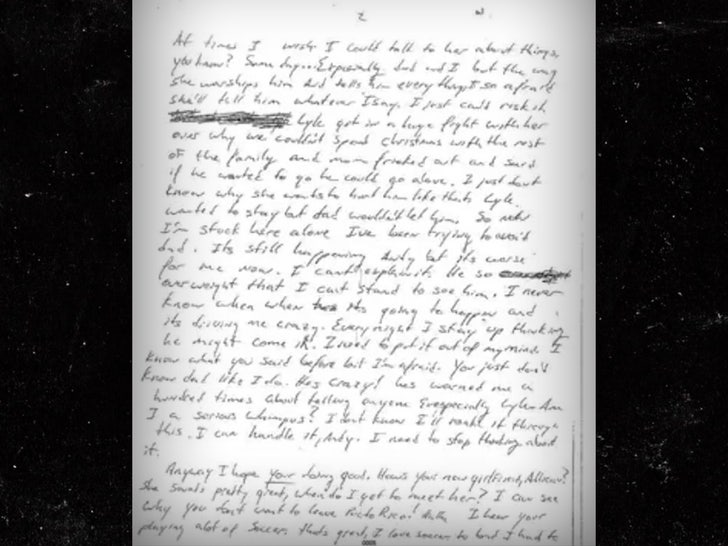 At times I wish I could talk to her about things,
you know? Some day... Especially dad and I but the way
she worships him and tells him everything I so afraid
she'll tell him whatever I say. I just can't risk it.
Lyle got in a huge fight with her
over why we couldn't spend christmas with the rest
of the family and mom freaked out and said
if he wanted to go he could go alone. I just don't
know why she wants to hurt him like that. Lyle
wanted to stay but dad wouldn't let him. So now
I'm stuck here alone I've been trying to avoid
dad. Its still happening Andy but its worse
for me now. I can't explain it. He so
overweight that I can't stand to see him. I never
know when when its going to happen and
its driving me crazy. Every night I stay up thinking
he might come in. I need to put it out of my mind. I
know what you said before but I'm afraid. You just don't
know dad like I do. Hes crazy! hes warned me a
hundred times about telling anyone especially Lyle. Am
I a serious whimpus? I dont know I'll make it through
this. I can handle it, Andy. I need to stop thinking about
it.
Anyway I hope your doing good. Hows your new girlfriend,
She sounds pretty great, when do I get to meet her? I can see
why you dont want to leave Puerto Rico! I hear your
playing alot of Soccer. thats great, I love soccer to but I had to